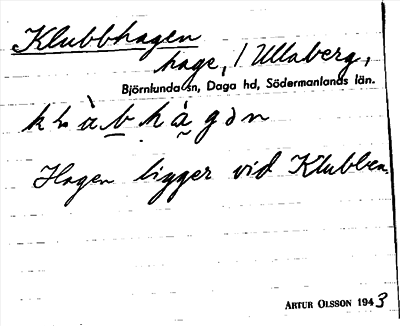 Klubbhagen
hage, / Ullaberg,
Björnlunda sn, Daga hd, Södermanlands län.
Hagen ligger vid Klubben.
ARTUR OLSSON 1943